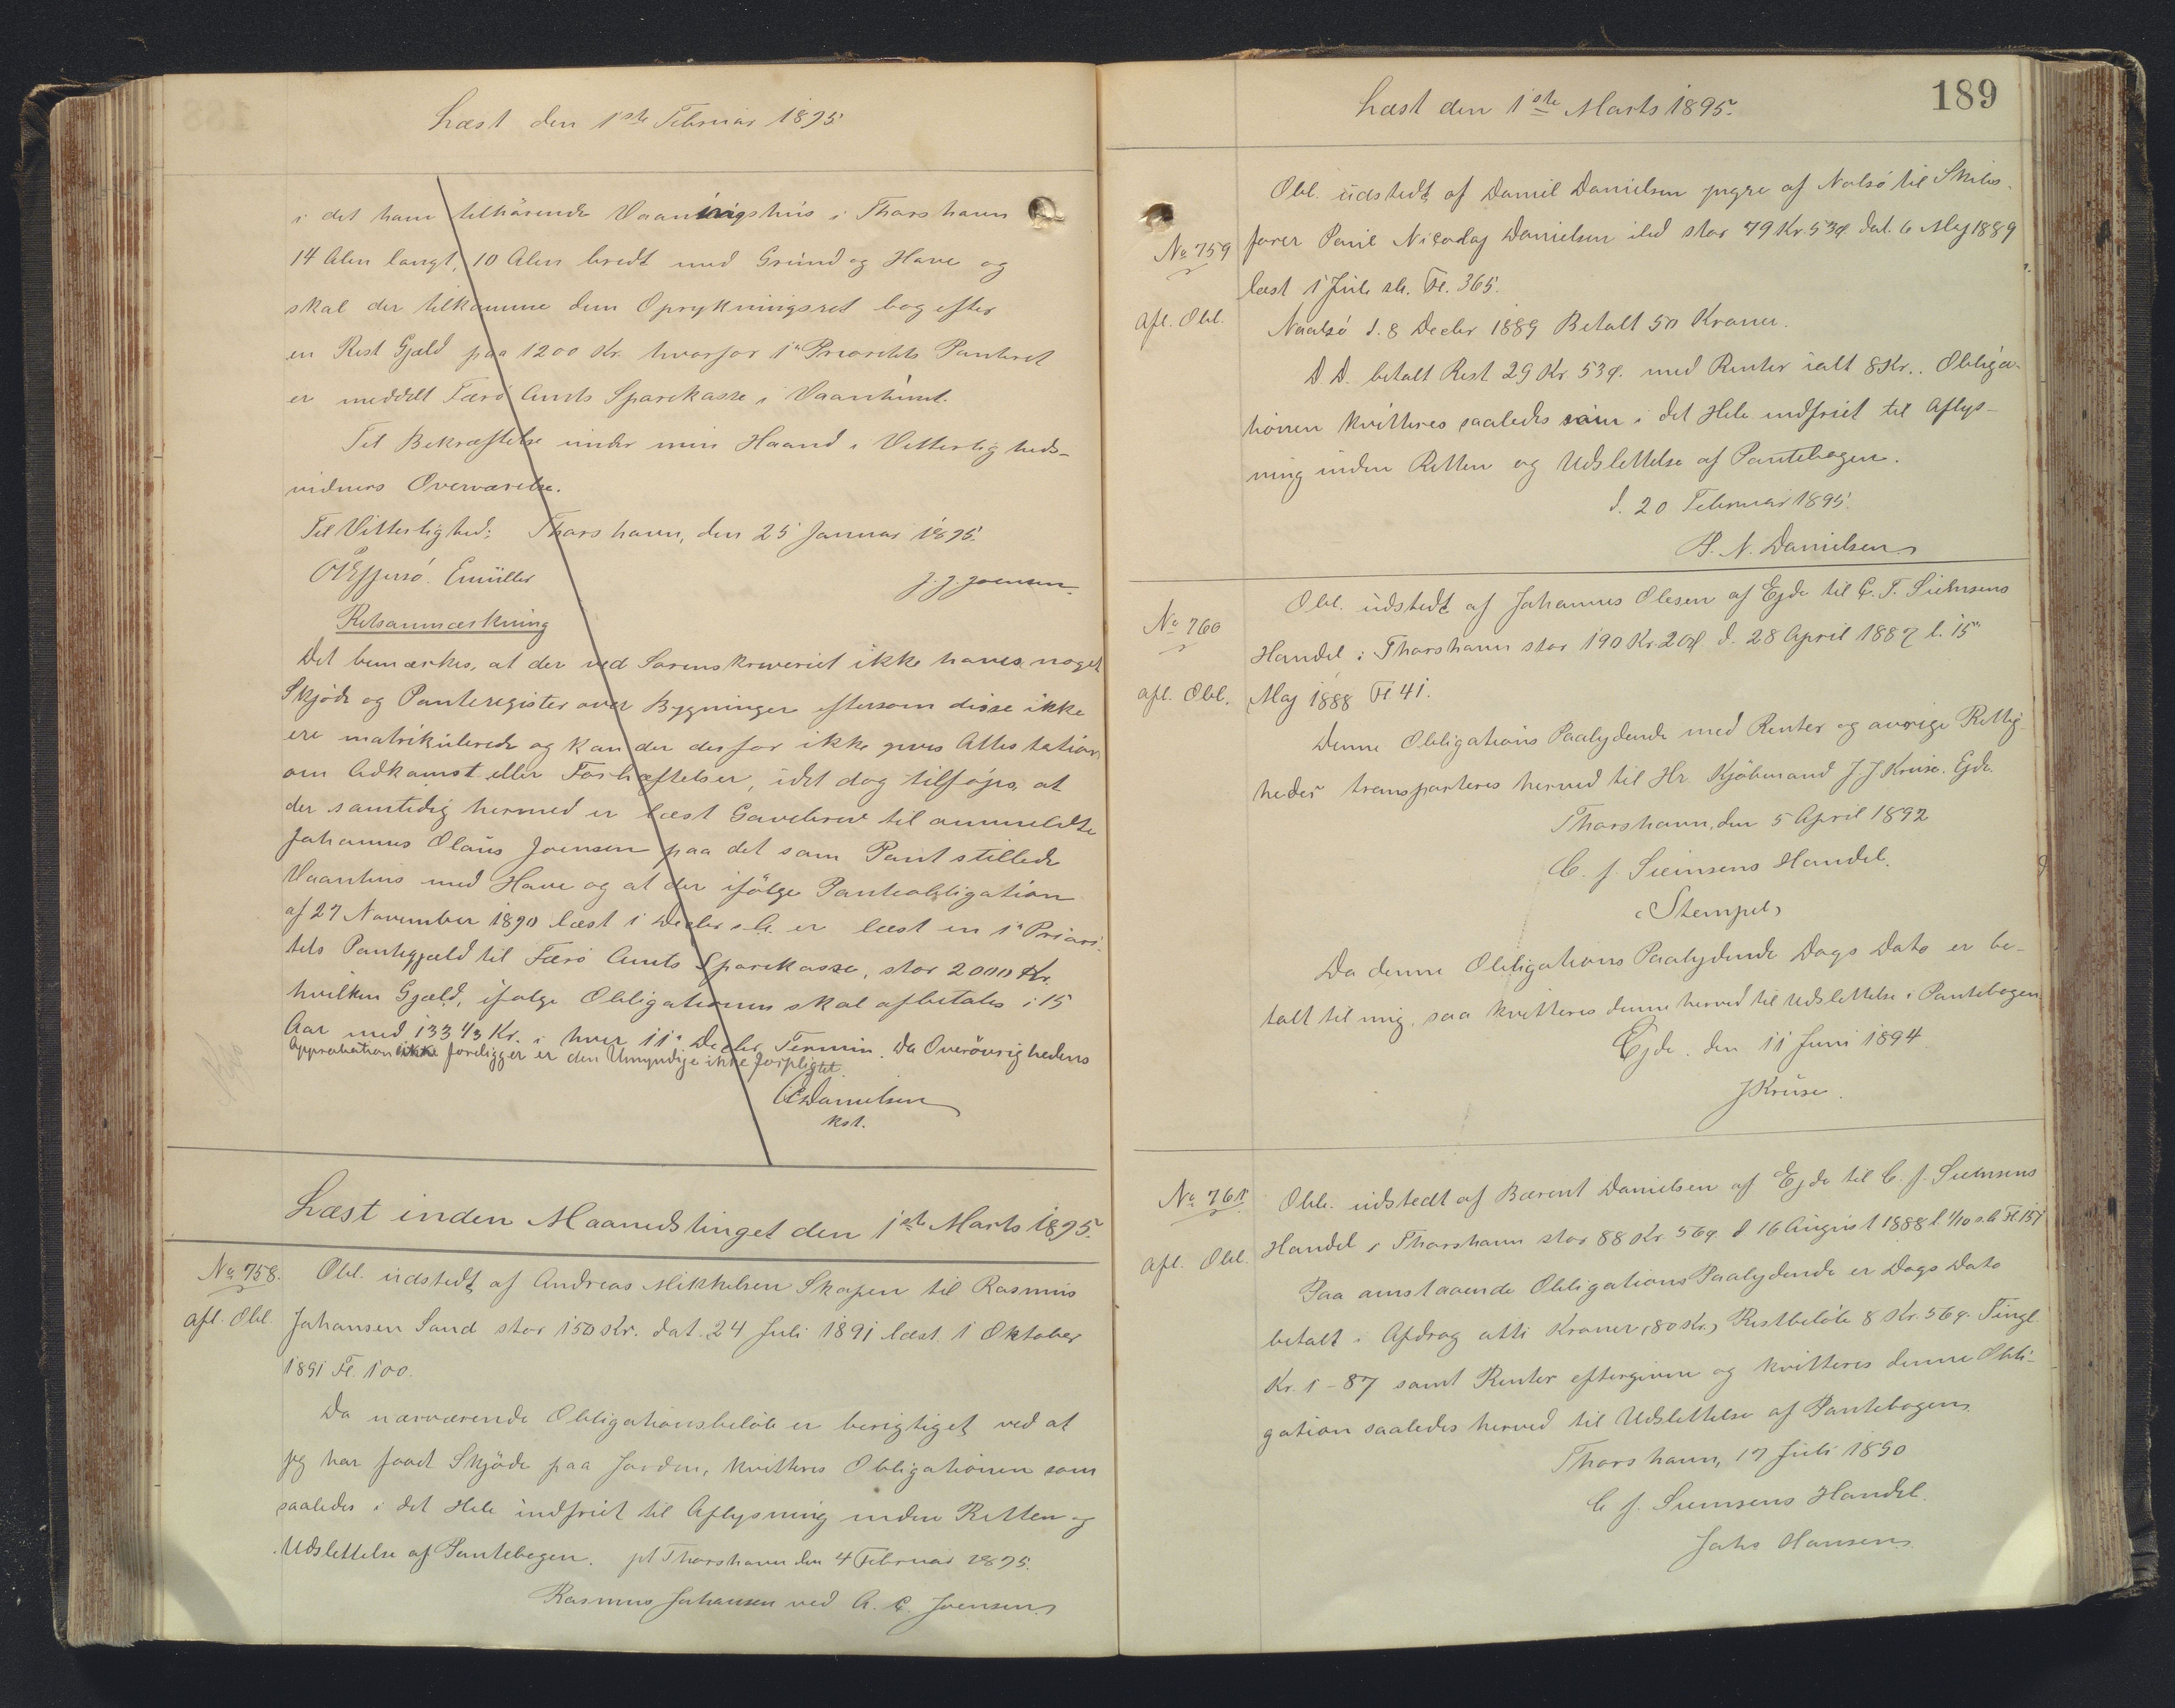 Læst den 1ste Februar 1895
i det ham tilhörende Vaaningshus i Thorshavn
14 Alen langt, 10 Alen bredt med Grund og Have og
skal der tilkomme dem Oprykningsret bag efter
en Rest Gjæld paa 1200 Kr. hvorfor 1ste Prioritets Panteret
er meddelt Færö Amts Sparekasse i Vaanhuset.
Til Bekræftelse under min Haand i Vitterligheds-
vidners Overværelse.
Til Vitterlighed: Thorshavn, den 25 Januar 1895.
Emüller J. J. Joensen
Retsanmærkning
Det bemærkes, at der ved Sorenskriveriet ikke haves noget
Skjöde og Panteregister over Bygninger eftersom disse ikke
ere matrikulerede og kan der derfor ikke gives Attestation
om Adkomst eller Forhæftelser, idet dog tilföjes, at
der samtidig hermed er læst Gavebrev til anmeldte
Johannes Olaus Joensen paa det som Pant stillede
Vaanhus med Have og at der ifölge Panteobligation
af 27 November 1890 læst 1 Decbr s. A. er læst en 1ste Priori-
tets Pantegjæld til Færö Amts Sparekasse, stor 2000 Kr.
hvilken Gjæld, ifölge Obligationen skal afbetales i 15
Aar med 133 1/3 Kr. i hver 11te Decbr Termin. Da Overövrighedens
Approbation ikke foreligger er den Umyndige ikke forpligtet.
Danielsen
kst.
Læst inden Maanedstinget den 1ste Marts 1895.
No 758. Obl. udstedt af Andreas Mikkelsen Skapen til Rasmus
afl. Obl. Johansen Sand stor 150 Kr. dat. 24 Juli 1891 læst 1 Oktober
1891 Fl. 100.
Da nærværende Obligationsbelöb er berigtiget ved at
jeg har faaet Skjöde paa Jorden, kvitteres Obligationen som
saaledes i det Hele indfriet til Aflysning inden Retten og
Udslettelse af Pantebogen. pt Thorshavn den 4 Februar 1895.
Rasmus Johansen ved A. C. Joensen
189
Læst den 1ste Marts 1895.
Obl. udstedt af Daniel Danielsen yngre af Nolsö til Skibs-
No 759 förer Poul Nicolaj Danielsen ibd stor 79 Kr. 53 Ø. dat. 6 Maj 1889
læst 1 Juli s. A. Fl. 365.
afl. Obl. Naalsö d. 8 Decbr 1889 Betalt 50 Kroner.
D. D. betalt Rest 29 Kr 53 Ø. med Renter ialt 8 Kr.. Obliga-
tionen kvitteres saaledes som i det Hele indfriet til Aflys-
ning inden Retten og Udslettelse af Pantebogen.
d. 20 Februar 1895.
P. N. Danielsen
No 760 Obl. udstedt af Johannes Olesen af Ejde til C. F. Siemsens
Handel i Thorshavn stor 190 Kr. 20 Ø d. 28 April 1887 l. 15
afl. Obl. Maj 1888 Fl 41.
Denne Obligations Paalydende med Renter og övrige Rettig-
heder transporteres herved til Hr. Kjöbmand J. J Kruse. Ejde.
Thorshavn, den 5 April 1892
C. F. Siemsens Handel.
(Stempel)
Da denne Obligations Paalydende Dags Dato er be-
talt til mig, saa kvitteres denne herved til Udslettelse i Pantebogen.
Ejde. den 11 Juni 1894
J Kruse.
No 761. Obl. udstedt af Bærent Danielsen af Ejde til C. F. Siemsens
afl. Obl. Handel i Thorshavn stor 88 Kr. 56 Ø d 16 August 1888 l 1/10 s. A. Fl 151
Paa omstaaende Obligations Paalydende er Dags Dato
betalt i Afdrag otti Kroner (80 Kr.) Restbelöb 8 Kr. 56 Ø. Tingl.
Kr. 1-87 samt Renter eftergivne og kvitteres denne Obli-
gation saaledes herved til Udslettelse af Pantebogen.
Thorshavn, 17 Juli 1890
C F. Siemsens Handel.
Johs Hansen